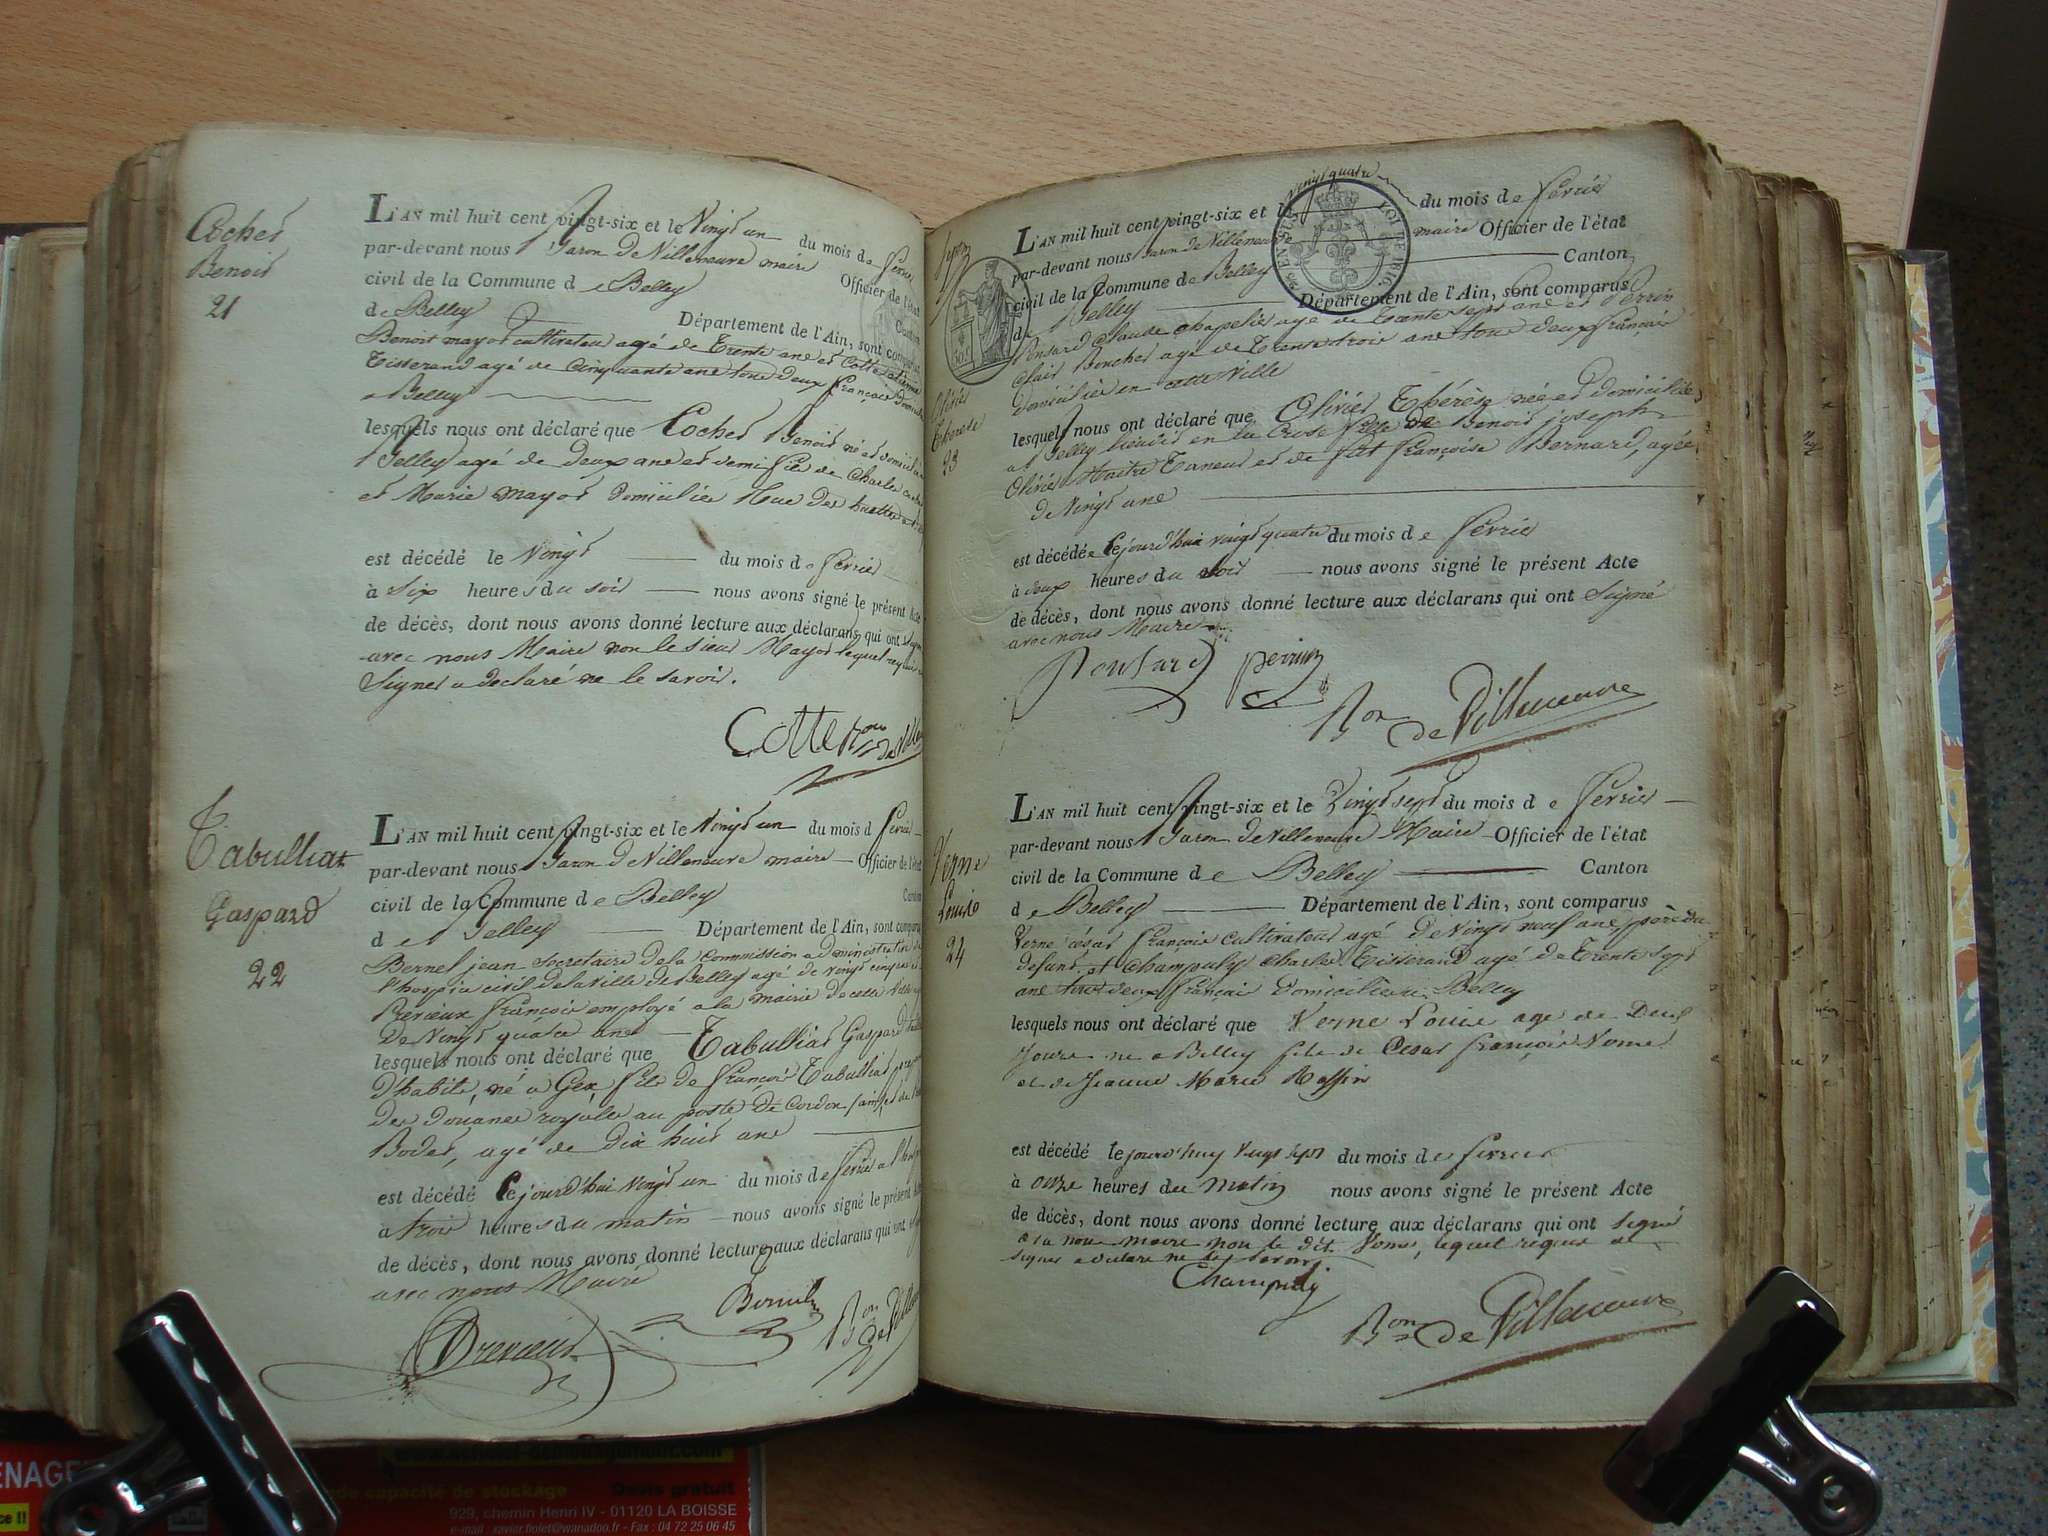 Cochet
Benoit
21
L'AN mil huit cent vingt-six et le Vingt un du mois de Février
par-devant nous Baron De Villeneuve maire Officier de l'état
civil de la Commune de Belley Canton
de Belley Département de l'Ain, sont comparus
Benoit mayot cultivateur agé de trente ans et Cotte
Tisserand agé de Cinquante ans tous deux français
a Belley
lesquels nous ont déclaré que Cochet Benoit né et domicilié
Belley agé de deux ans et demi fils de Charles
et Marie mayot domiciliés Rue des
est décédé le Vingt du mois de Février
à six heures du soir nous avons signé le présent Acte
de décès, dont nous avons donné lecture aux déclarans qui ont signé
avec nous Maire non le sieur Mayot lequel requis de
Signer a declaré ne le savoir.
Cotte Bon de Ville
Tabulliat
Gaspard
22
L'AN mil huit cent vingt-six et le Vingt un du mois d Février
par-devant nous Baron De Villeneuve maire Officier de l'état
civil de la Commune de Belley Canton
de Belley Département de l'Ain, sont comparus
Bernel jean Secretaire de la Commission administrative
l'hospice civil de la Ville de Belley agé de vingt cinq
françois employé a la mairie de cette Ville
De Vingt quatre ans
lesquels nous ont déclaré que Tabulliat Gaspard
D'habits, né a Gex, fils de françois Tabulliat
des Douanes royales au poste De Cordon
Bodet, agé de Dix huit ans
est décédé cejourd'hui vingt un du mois de Février a
a trois heures du matin nous avons signé le présent
de décès, dont nous avons donné lecture aux déclarans qui ont
avec nous Maire
Bernel
Bon de Ville
Lyon
L'AN mil huit cent vingt-six et le vingt quatre du mois de Février
par-devant nous Baron de Villeneuve maire Officier de l'état
civil de la Commune de Belley Canton
de Belley Département de l'Ain, sont comparus
Ponsard Claude chapelier agé de trente sept ans et Perrin
Clair Boucher agé de Trente trois ans tous deux français
domiciliés en cette Ville
Olivier
Therese
23
lesquels nous ont déclaré que Olivier Thérèse née et domiciliée
a Belley lieudit en la Crose fille de Benoit joseph
Olivier Maitre Taneur et de fut françoise Bernard, agée
de Vingt ans
est décédée cejourd'hui vingt quatre du mois de Février
à deux heures du soir nous avons signé le présent Acte
de décès, dont nous avons donné lecture aux déclarans qui ont Signé
avec nous Maire
Ponsard perrin
Bon de Villeneuve
Verne
Louise
24
L'AN mil huit cent vingt-six et le Vingt sept du mois de Février
par-devant nous Baron de Villeneuve Maire Officier de l'état
civil de la Commune de Belley Canton
de Belley Département de l'Ain, sont comparus
Verne césar françois cultivateur agé de Vingt neuf ans, père du
defunt et Champuly Charles Tisserand agé de Trente sept
ans tous deux français domiciliés a Belley
lesquels nous ont déclaré que Verne Louise agé de Deux
Jours né a Belley fils de Cesar françois Verne
et de Jeanne Marie
est décédé lejourd'huy vingt sept du mois de Février
à onze heures du Matin nous avons signé le présent Acte
de décès, dont nous avons donné lecture aux déclarans qui ont signé
nous maire non le dit Verne, lequel requis de
signer a declaré ne le savoir
Champuly
Bon de Villeneuve
ENAGE
929, chemin Henri IV - 01120 LA BOISSE
Devis gratuit
capacité de stockage
Fax : 04 72 25 06 45